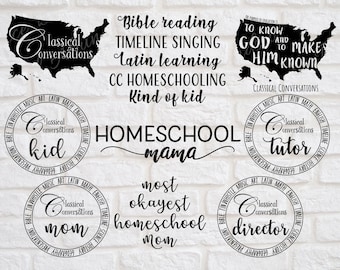 Classical
Conversations
Bible reading
TIMELINE SINGING
Latin learning
CC HOMESCHOOLING
Kind of kid
TO KNOW
GOD AND TO
MAKE
HIM KNOWN
CLASSICAL CONVERSATIONS
Classical
Conversations
kid
HOMESCHOOL
mama
Classical
Conversations
tutor
Classical
Conversations
mom
most
okayest
homeschool
mom
Classical
Conversations
director